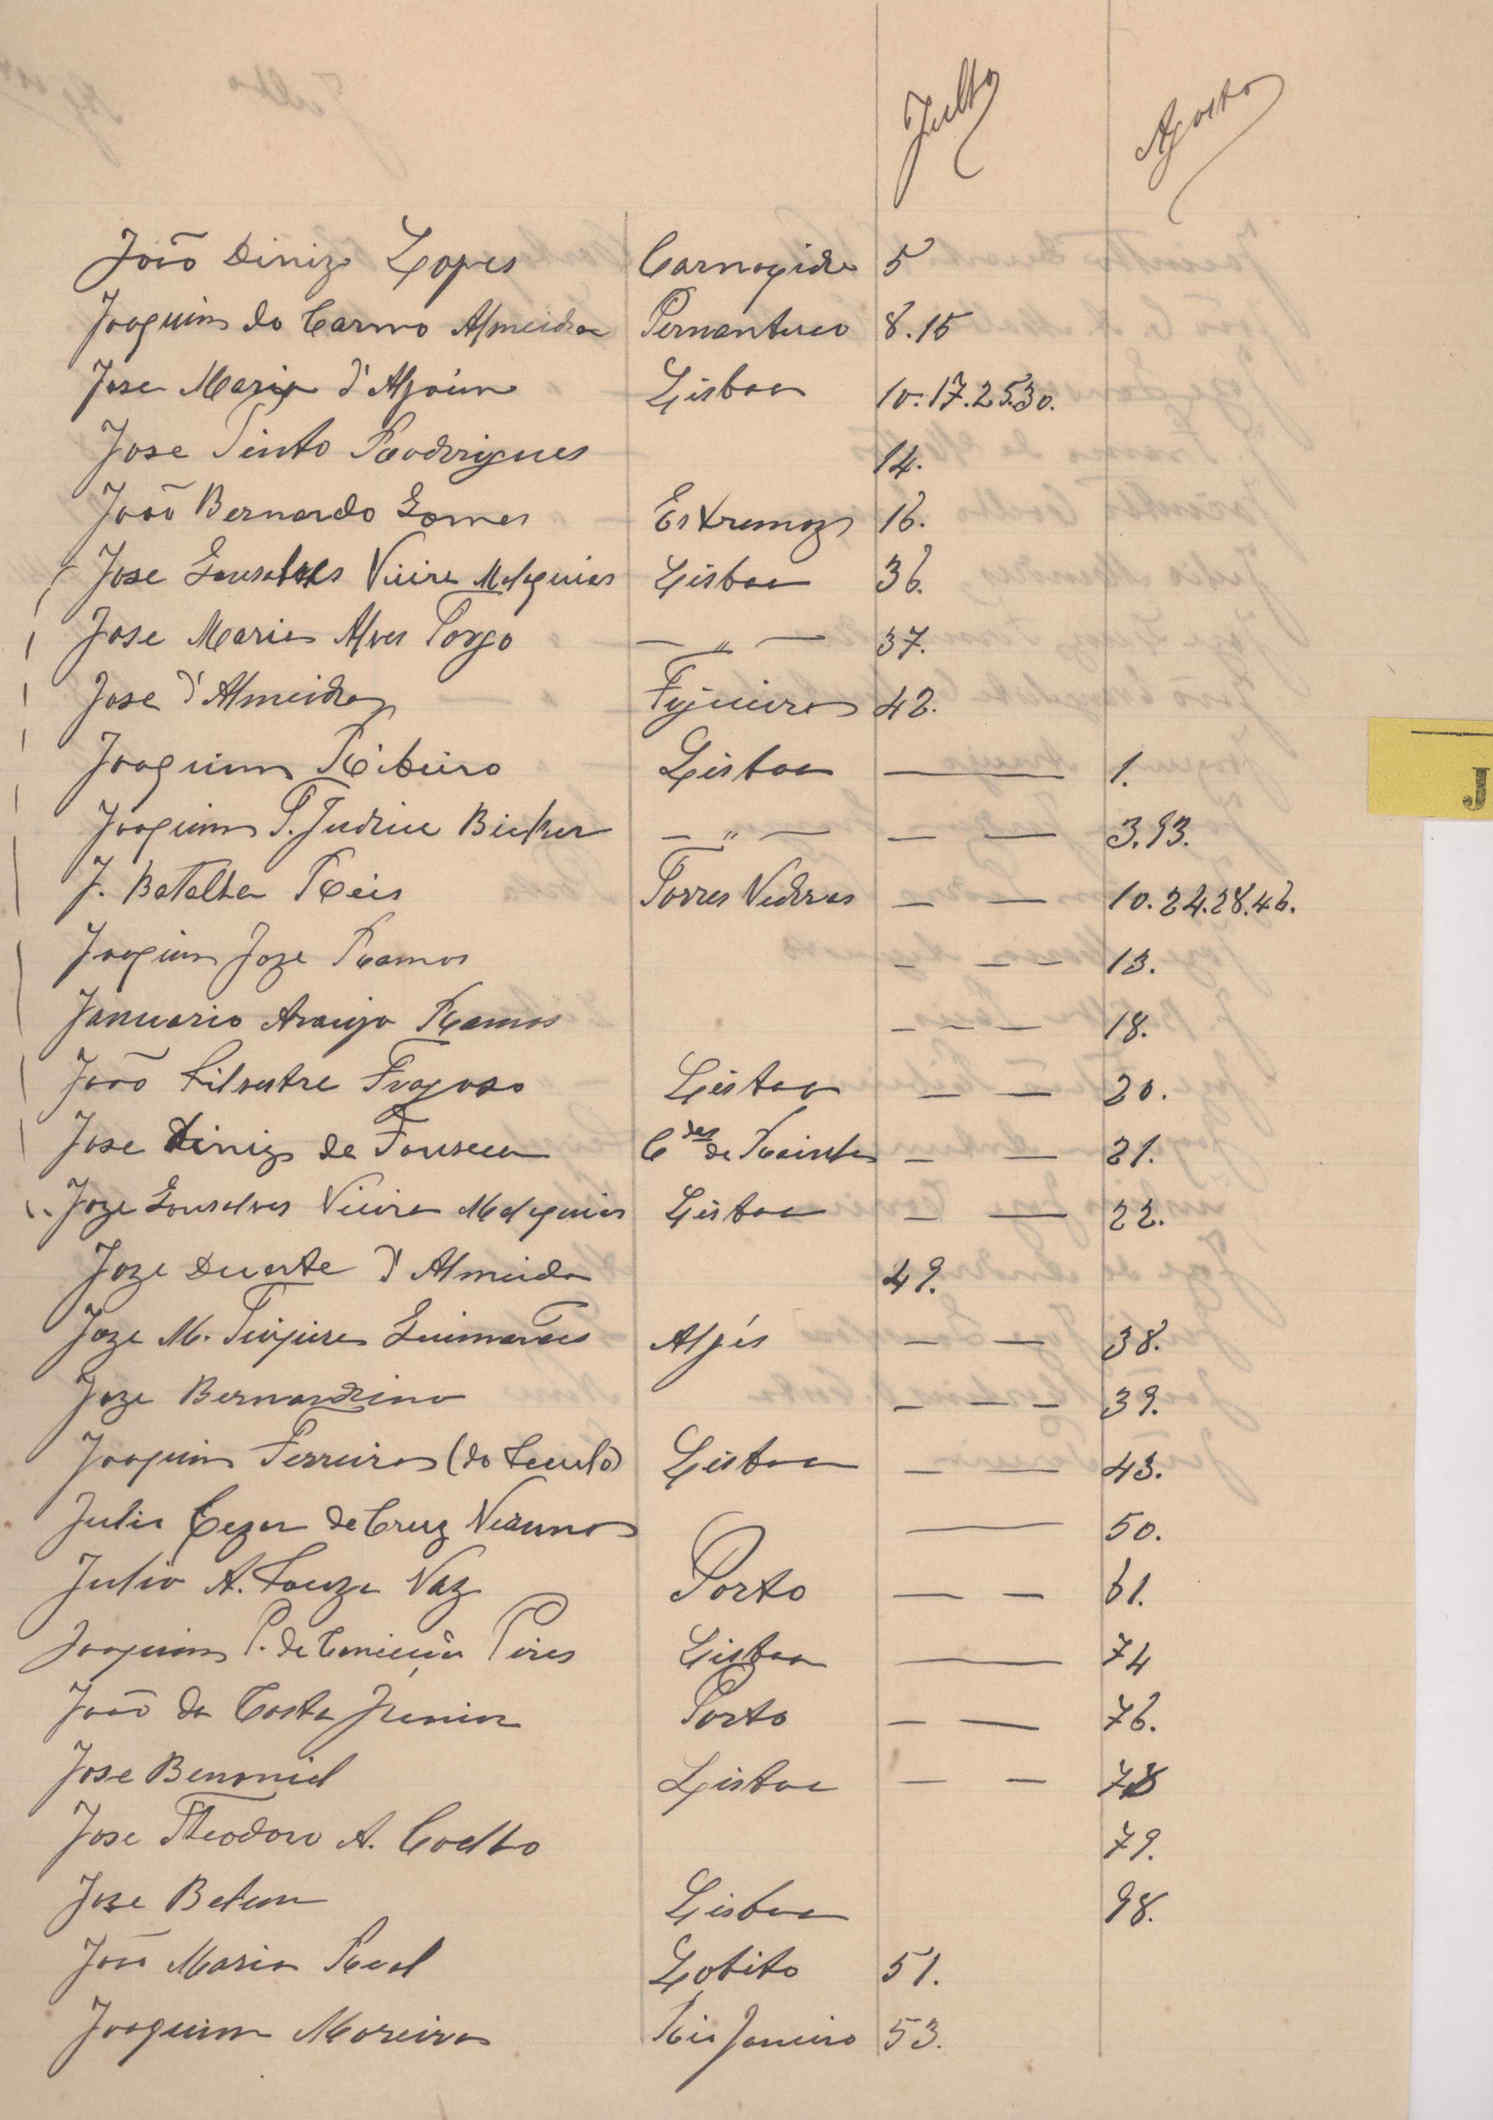 Julho Agosto
João Diniz Lopes Carnaxide 5
Joaquim do Carmo Almeida Pernambuco 8.15
Jose Maria d'Alpoim Lisboa 10.17.25.30.
Jose Pinto Rodrigues 14.
João Bernardo Gomes Extremoz 16.
Jose Gonsalves Vieira Melquias Lisboa 36.
Jose Maria Alves Torgo — " — 37.
Jose d'Almeida Figueira 42.
Joaquim Ribeiro Lisboa — 1.
Joaquim P. Judice Bicker — " — — — 3.93.
J. Batalha Reis Torres Vedras — — 10.24.28.46.
Joaquim Joze Ramos — — — 13.
Januario Araujo Ramos — — — 18.
João Silvestre Fragoso Lisboa — — 20.
Jose Diniz da Fonseca C des da Rainha — — 21.
Joze Gonsalves Vieira Melquias Lisboa — — 22.
Joze Duarte d'Almeida 49.
Joze M. Teixeira Guimarães Algés — — 38.
Joze Bernardino — — — 39.
Joaquim Ferreira (do Seculo) Lisboa — — 43.
Julio Cezar da Cruz Vianna — 50.
Julio A. Souza Vaz Porto — — 61.
Joaquim P. da Conceição Pires Lisboa — 74
João da Costa Junior Porto — — 76.
Jose Benoniel Lisboa — — 78
Jose Theodoro A. Coelho 79.
Jose Lisboa 98.
João Maria Real Lobito 51.
Joaquim Moreira Rio Janeiro 53.
J